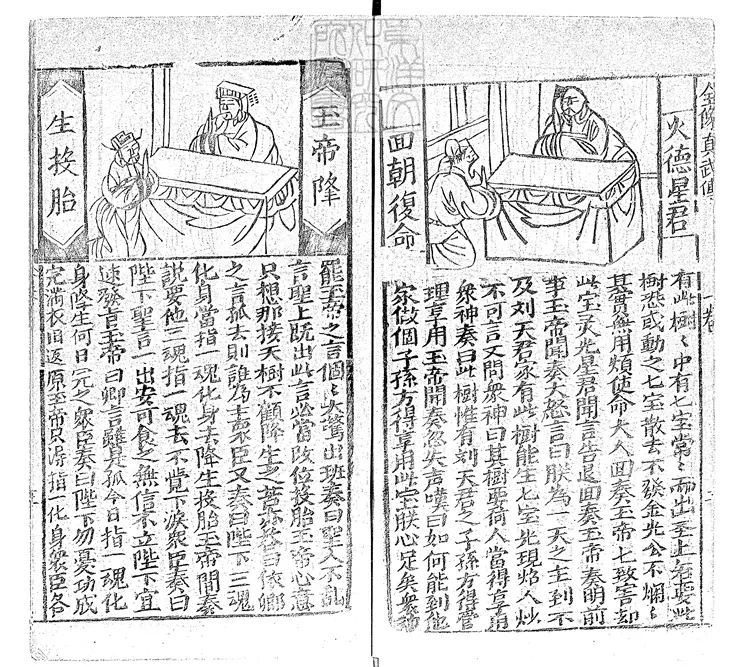 真武傳
一卷
火德星君
回朝復命
有此樹〻中有七宝常〻而出至上君受此
樹恐或動之七宝散去不發金光公不爛〻
其實無用煩使命大人回奏玉帝七致害却
此宝灵光星君聞言告退回奏玉帝奏明前
事玉帝聞奏大怒言曰朕為一天之主到不
及刘天君家有此樹能生七宝光現焰人炒
不可言又問衆神曰其樹要荷人當得享用
衆神奏曰此樹惟有刘天君之子孫方得管
理享用玉帝聞奏忽失声嘆曰如何能到他
家做個子孫方得享用此宝朕心足矣衆神
玉帝降
生投胎
罷玉帝之言個〻大驚出班奏曰聖人不乱
言聖上既出此言必當改位投胎玉帝心意
只想那接天樹不顧降生之苦答曰依卿
之言孤去則誰為主衆臣又奏曰陛下三魂
化身當指一魂化身去降生投胎玉帝聞奏
説要他三魂指一魂去不覺下淚衆臣奏曰
陛下聖言一出安可食之無信不立陛下宜
速發言玉帝曰卿言雖是孤今日指一魂化
身降生何日完之衆臣奏曰陛下勿憂功成
完満衣旧返原玉帝只得指一化身衆臣各